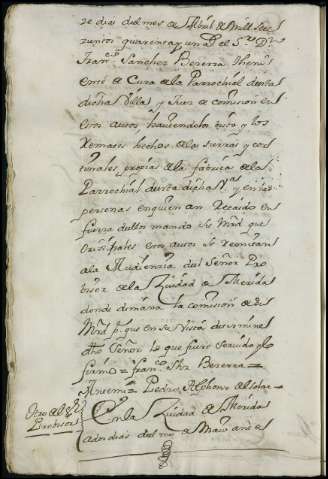 ze dias del mes de Abril de mill Sete
zientos quarenta y un a.s el S.r D.n
Fran.co Sanchez Bezerra Theni
ente de Cura de la Parrochial de esta
dicha Villa, y Juez de comision en
estos autos haviendolos visto, y los
remates hechos de las tierras y cor
tinales propias de la fabrica de la
Parrochial de esta dicha V.a y en las
personas en quienes an Recaido en
fuerza dellos mando su Mrd que
originales estos autos se remitan
a la Audienzia del Señor Pro
bisor de la Ziudad de Merida
donde dimana la comision de su
Mrd p.a que en su vista determine
dho Señor lo que fuere servido y lo
firmo = Fran.co Shz Bezerra =
Antemi = Pedro Alphons
Otro del S.or
Provisor
En la Ziudad de Merida
a dos dias del mes de Mayo año de